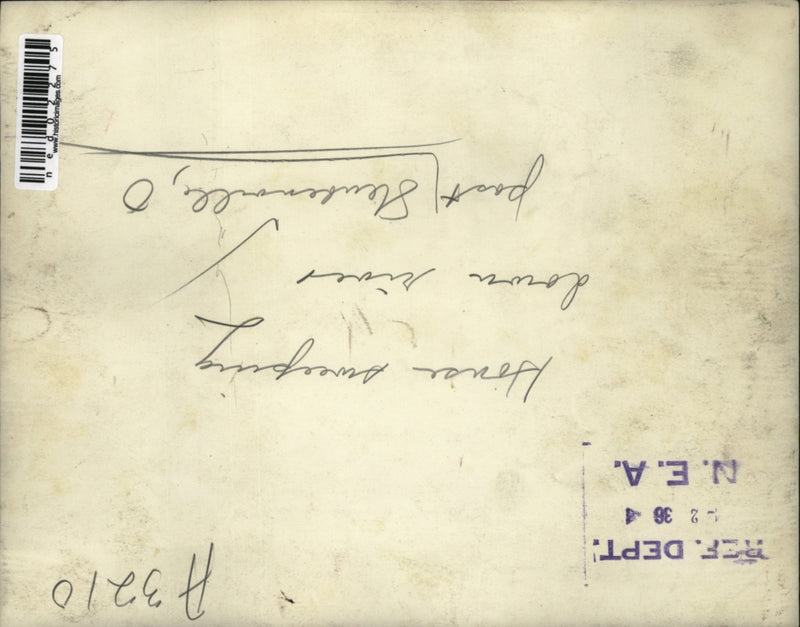 A3210
REF. DEPT.
2 36 4
N.E.A.
House sweeping
down river
past Steubenville, O
ned02275
www.historicimages.com